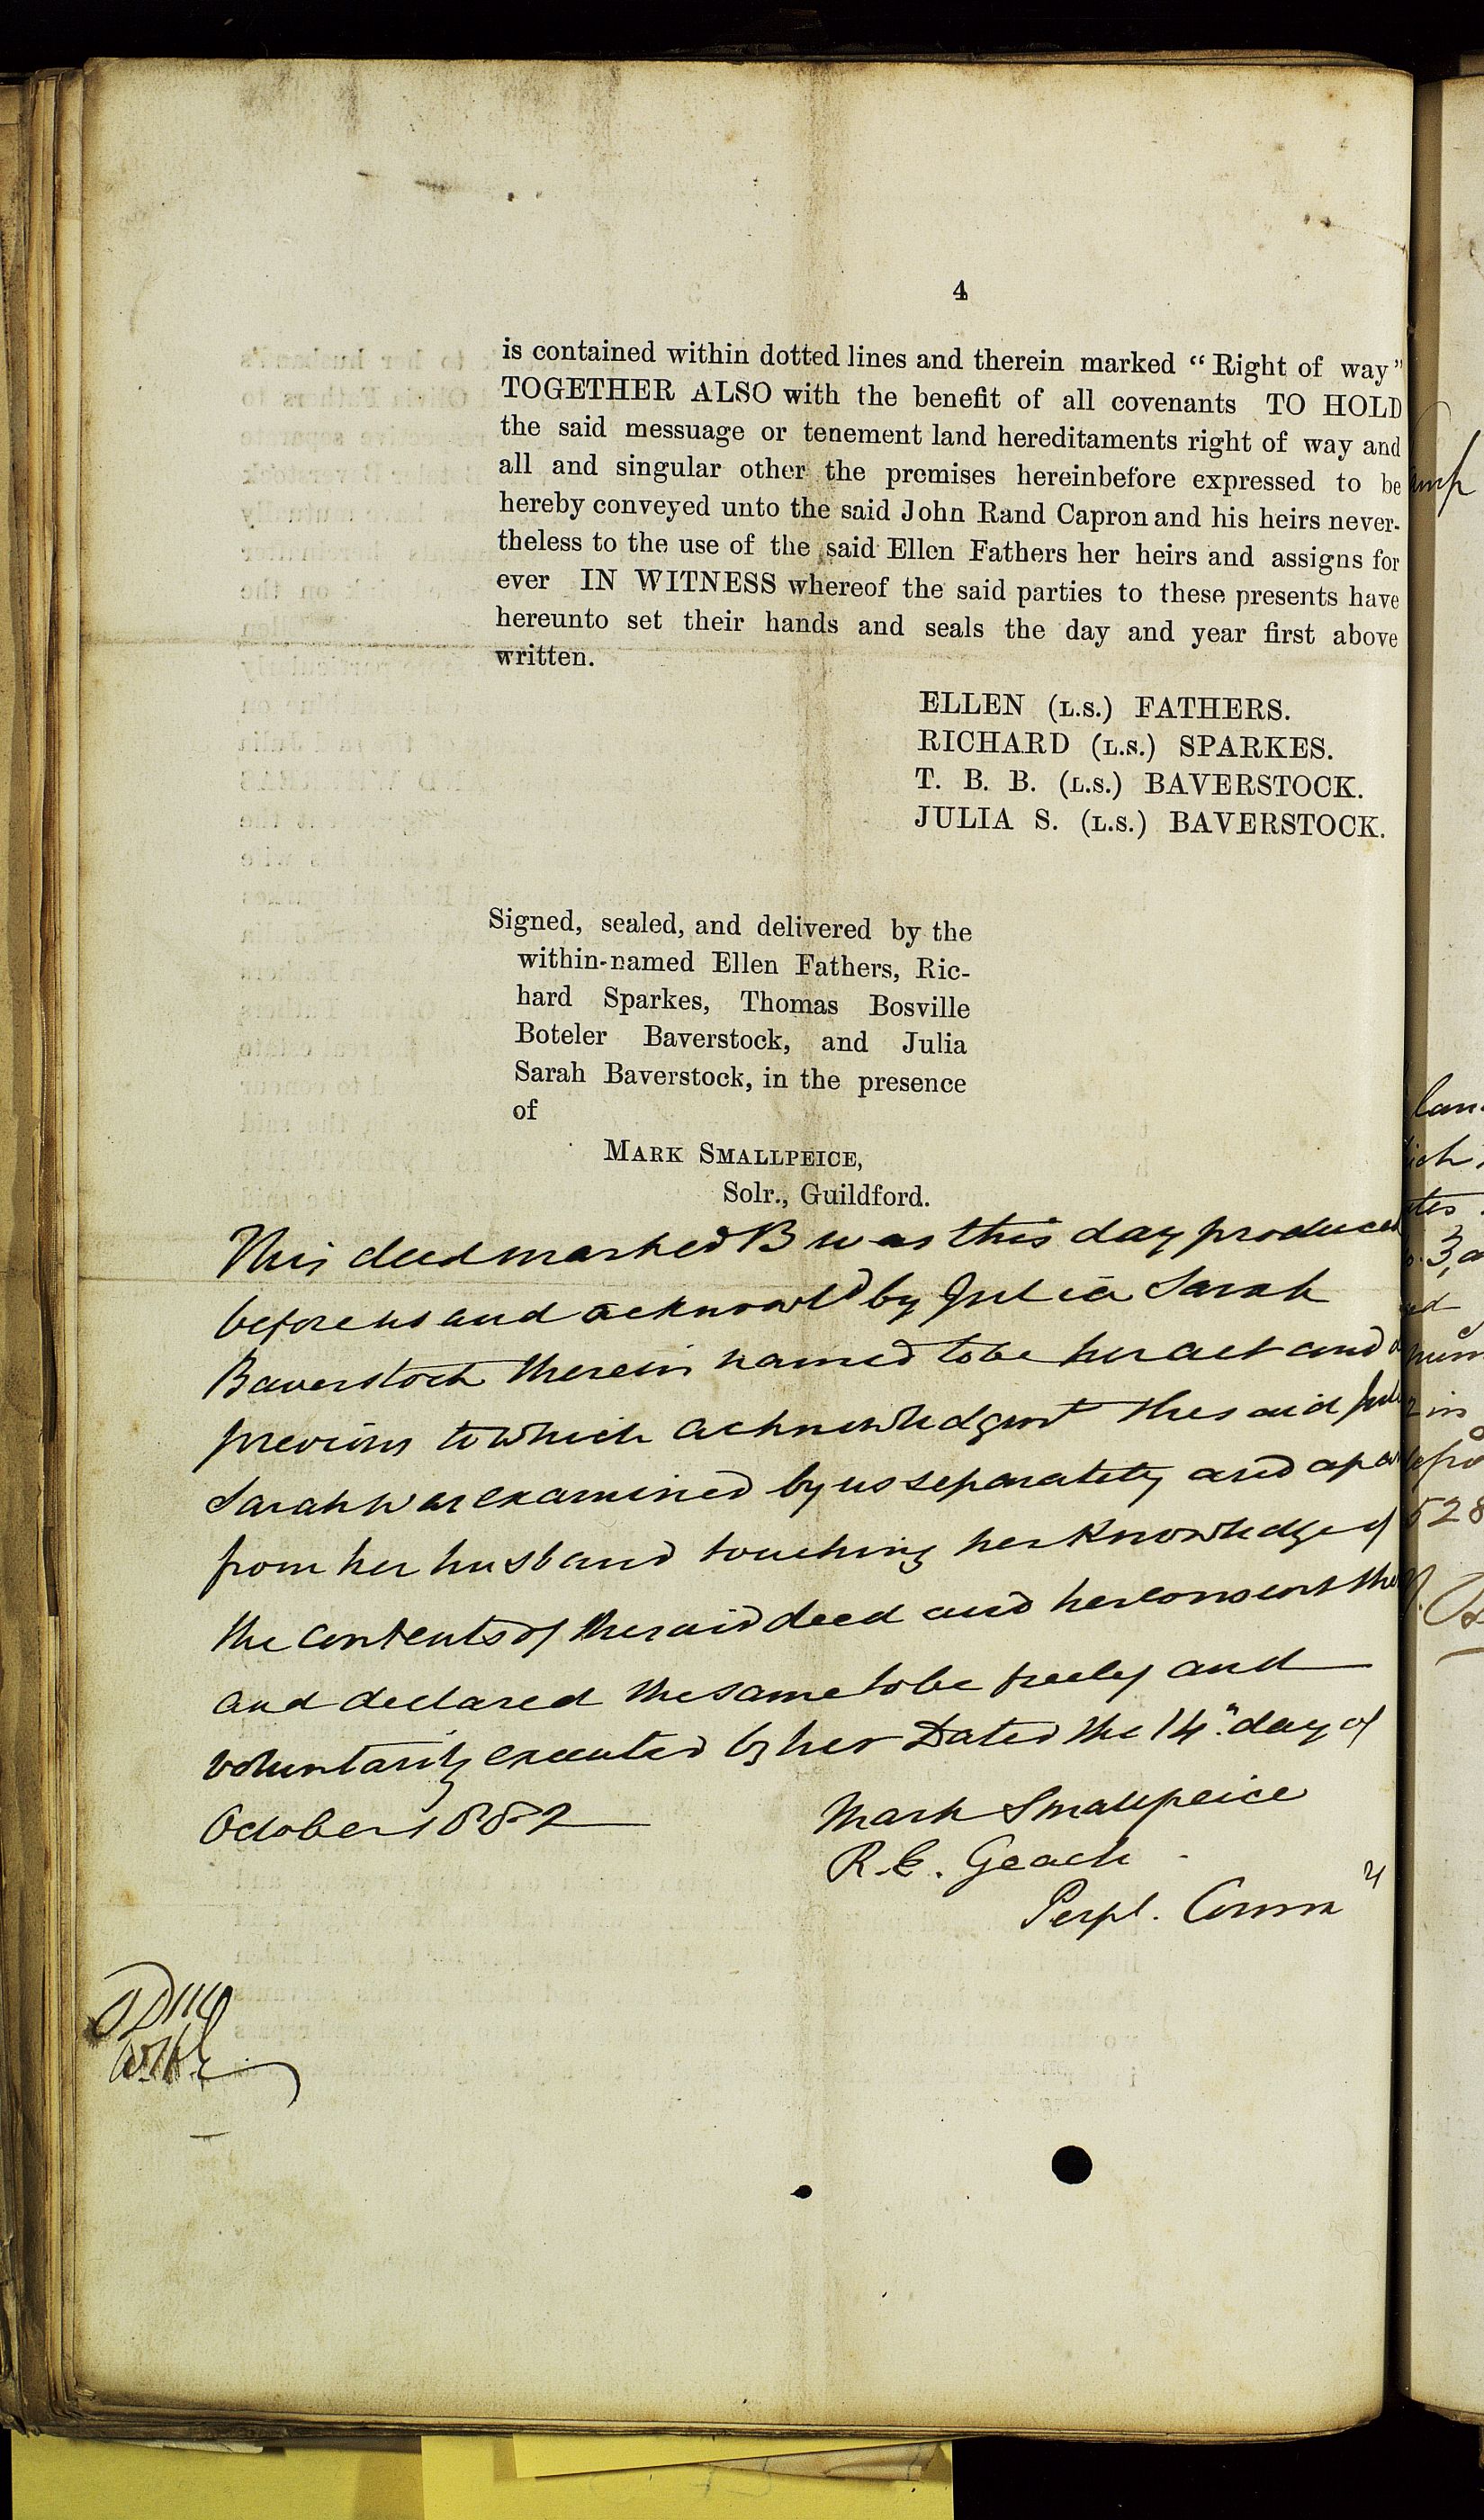 4
is contained within dotted lines and therein marked “Right of way”
TOGETHER ALSO with the benefit of all covenants TO HOLD
the said messuage or tenement land hereditaments right of way and
all and singular other the premises hereinbefore expressed to be
hereby conveyed unto the said John Rand Capron and his heirs never-
theless to the use of the said Ellen Fathers her heirs and assigns for
ever IN WITNESS whereof the said parties to these presents have
hereunto set their hands and seals the day and year first above
written.
ELLEN (L.S.) FATHERS.
RICHARD (L.S.) SPARKES.
T. B. B. (L.S.) BAVERSTOCK.
JULIA S. (L.S.) BAVERSTOCK.
Signed, sealed, and delivered by the
within-named Ellen Fathers, Ric-
hard Sparkes, Thomas Bosville
Boteler Baverstock, and Julia
Sarah Baverstock, in the presence
of
MARK SMALLPEICE,
Solr., Guildford.
This deed marked B was this day produced
before us and acknowld by Julia Sarah
Baverstock therein named to be her act and
previous to which acknowledgmt the said
Sarah was examined by us separately and apart
from her husband touching her knowledge of
the contents of the said deed and her consent
and declared the same to be freely and
voluntarily executed by her Dated the 14" day of
October 1882
Mark Smallpeice
R. E. Geach
Perpl. Comm
528